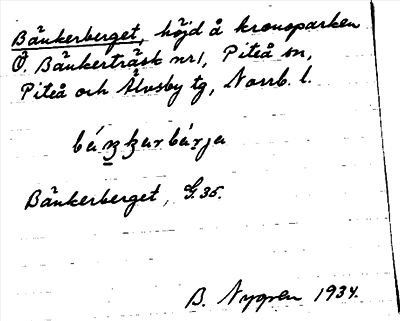 Bänkerberget, höjd å kronoparken
Ö. Bänkerträsk nr 1, Piteå sn,
Piteå och Älvsby tg, Norrb. l.
Bänkerberget, G. 35.
B. Nygren 1934.